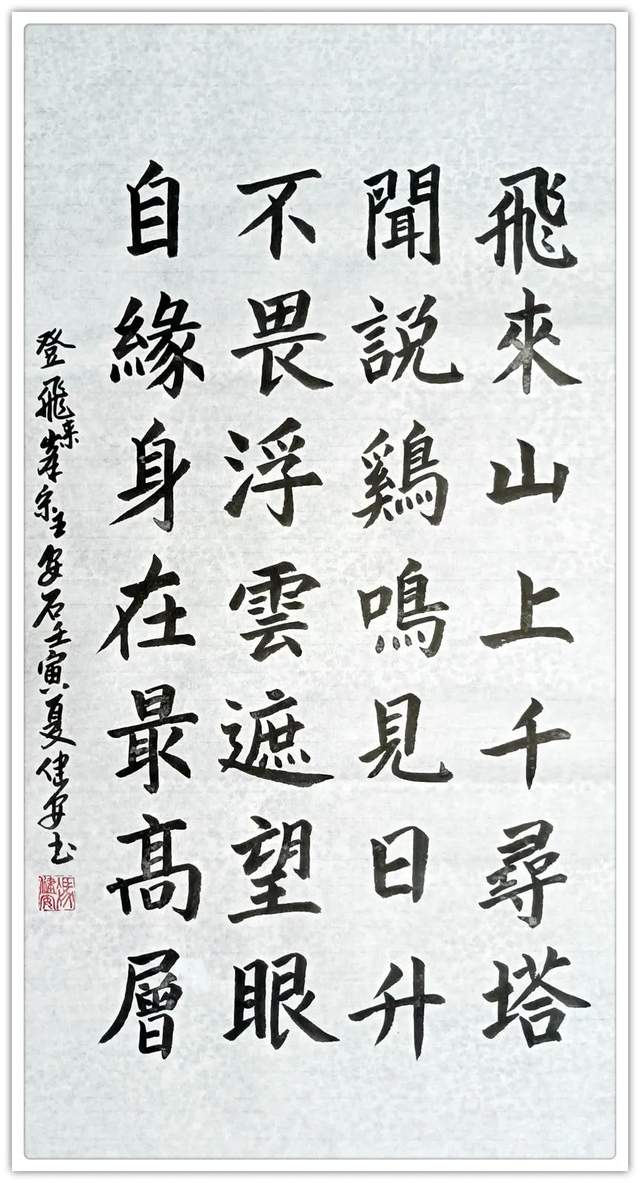 飛來山上千尋塔
聞説鷄鳴見日升
不畏浮雲遮望眼
自緣身在最高層
登飛來峯宋王安石壬寅夏健安书
馮健安